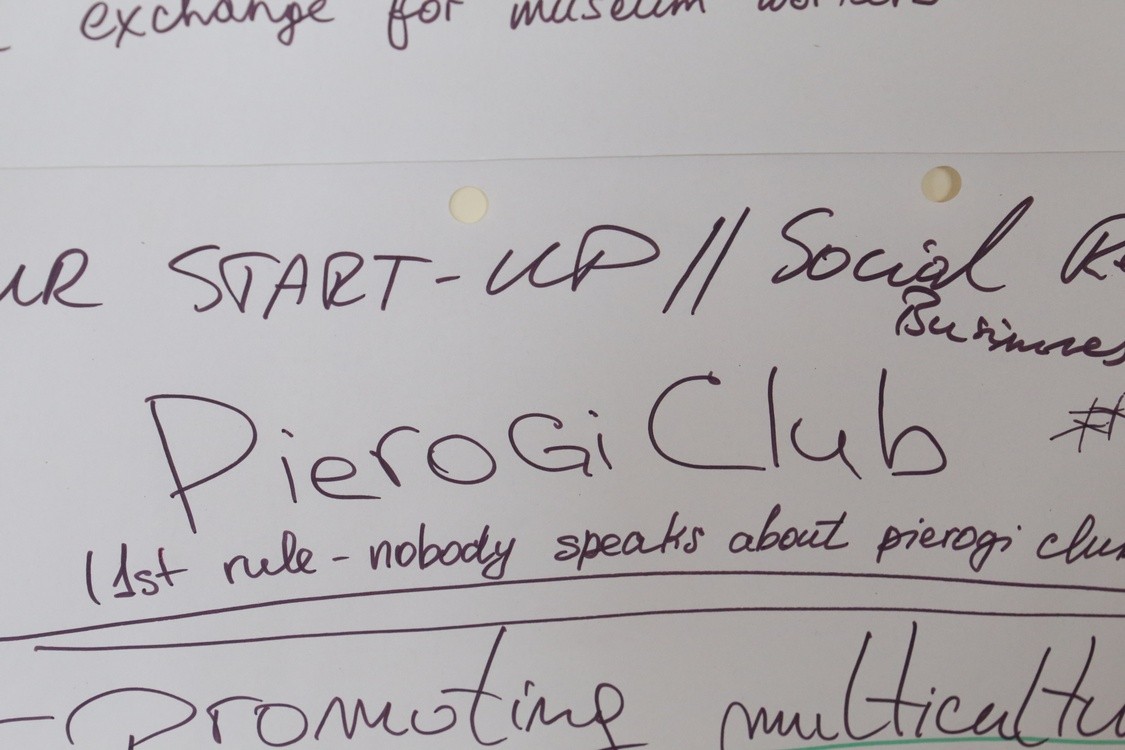 exchange for museum workers
UR START-UP // Social
Business
PieroGi Club #
(1st rule - nobody speaks about pierogi club
- Promoting multicultu